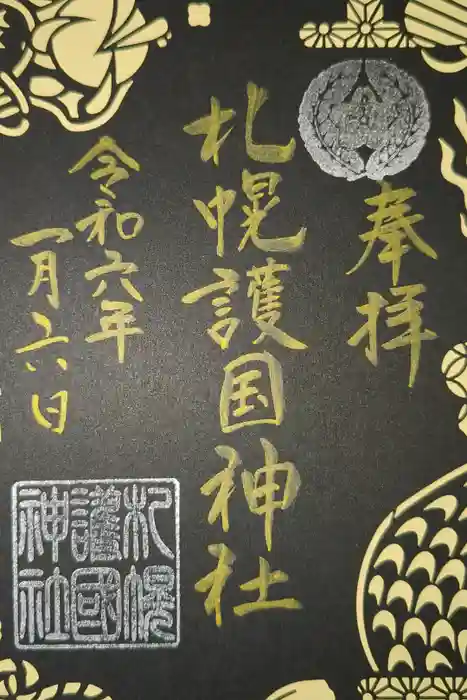 奉拝
札幌護国神社
令和六年
一月六日
札幌
護國
神社